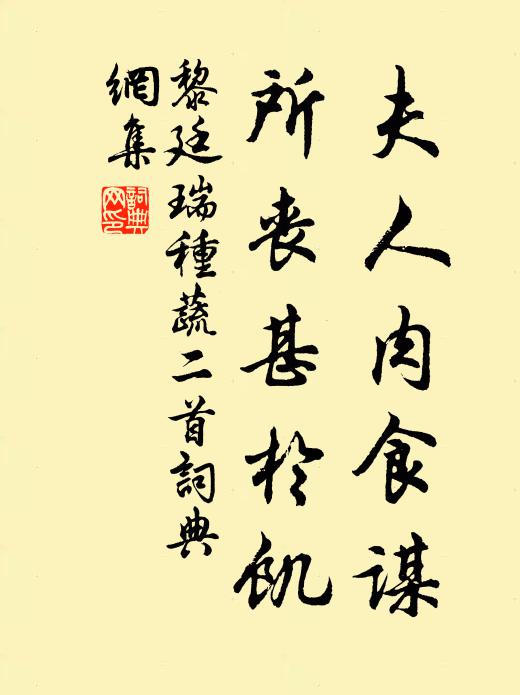 夫人肉食謀
所喪甚於飢
黎廷瑞種蔬二首詞典
網集
詞典
网印